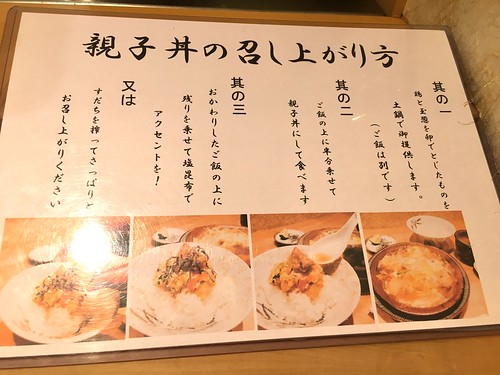 親子丼の召し上がり方
其の一
鶏と玉葱を卵でとじたものを
土鍋で御提供します。
(ご飯は別です)
其の二
ご飯の上に半分乗せて
親子丼にして食べます
其の三
おかわりしたご飯の上に
残りを乗せて塩昆布で
アクセントを!
又は
すだちを搾ってさっぱりと
お召し上がりください